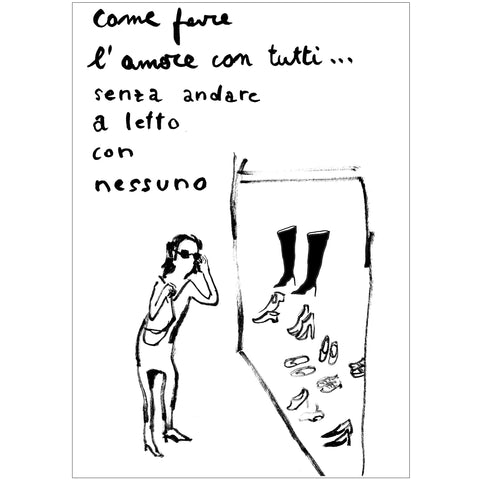 come fare
l'amore con tutti...
senza andare
a letto
con
nessuno